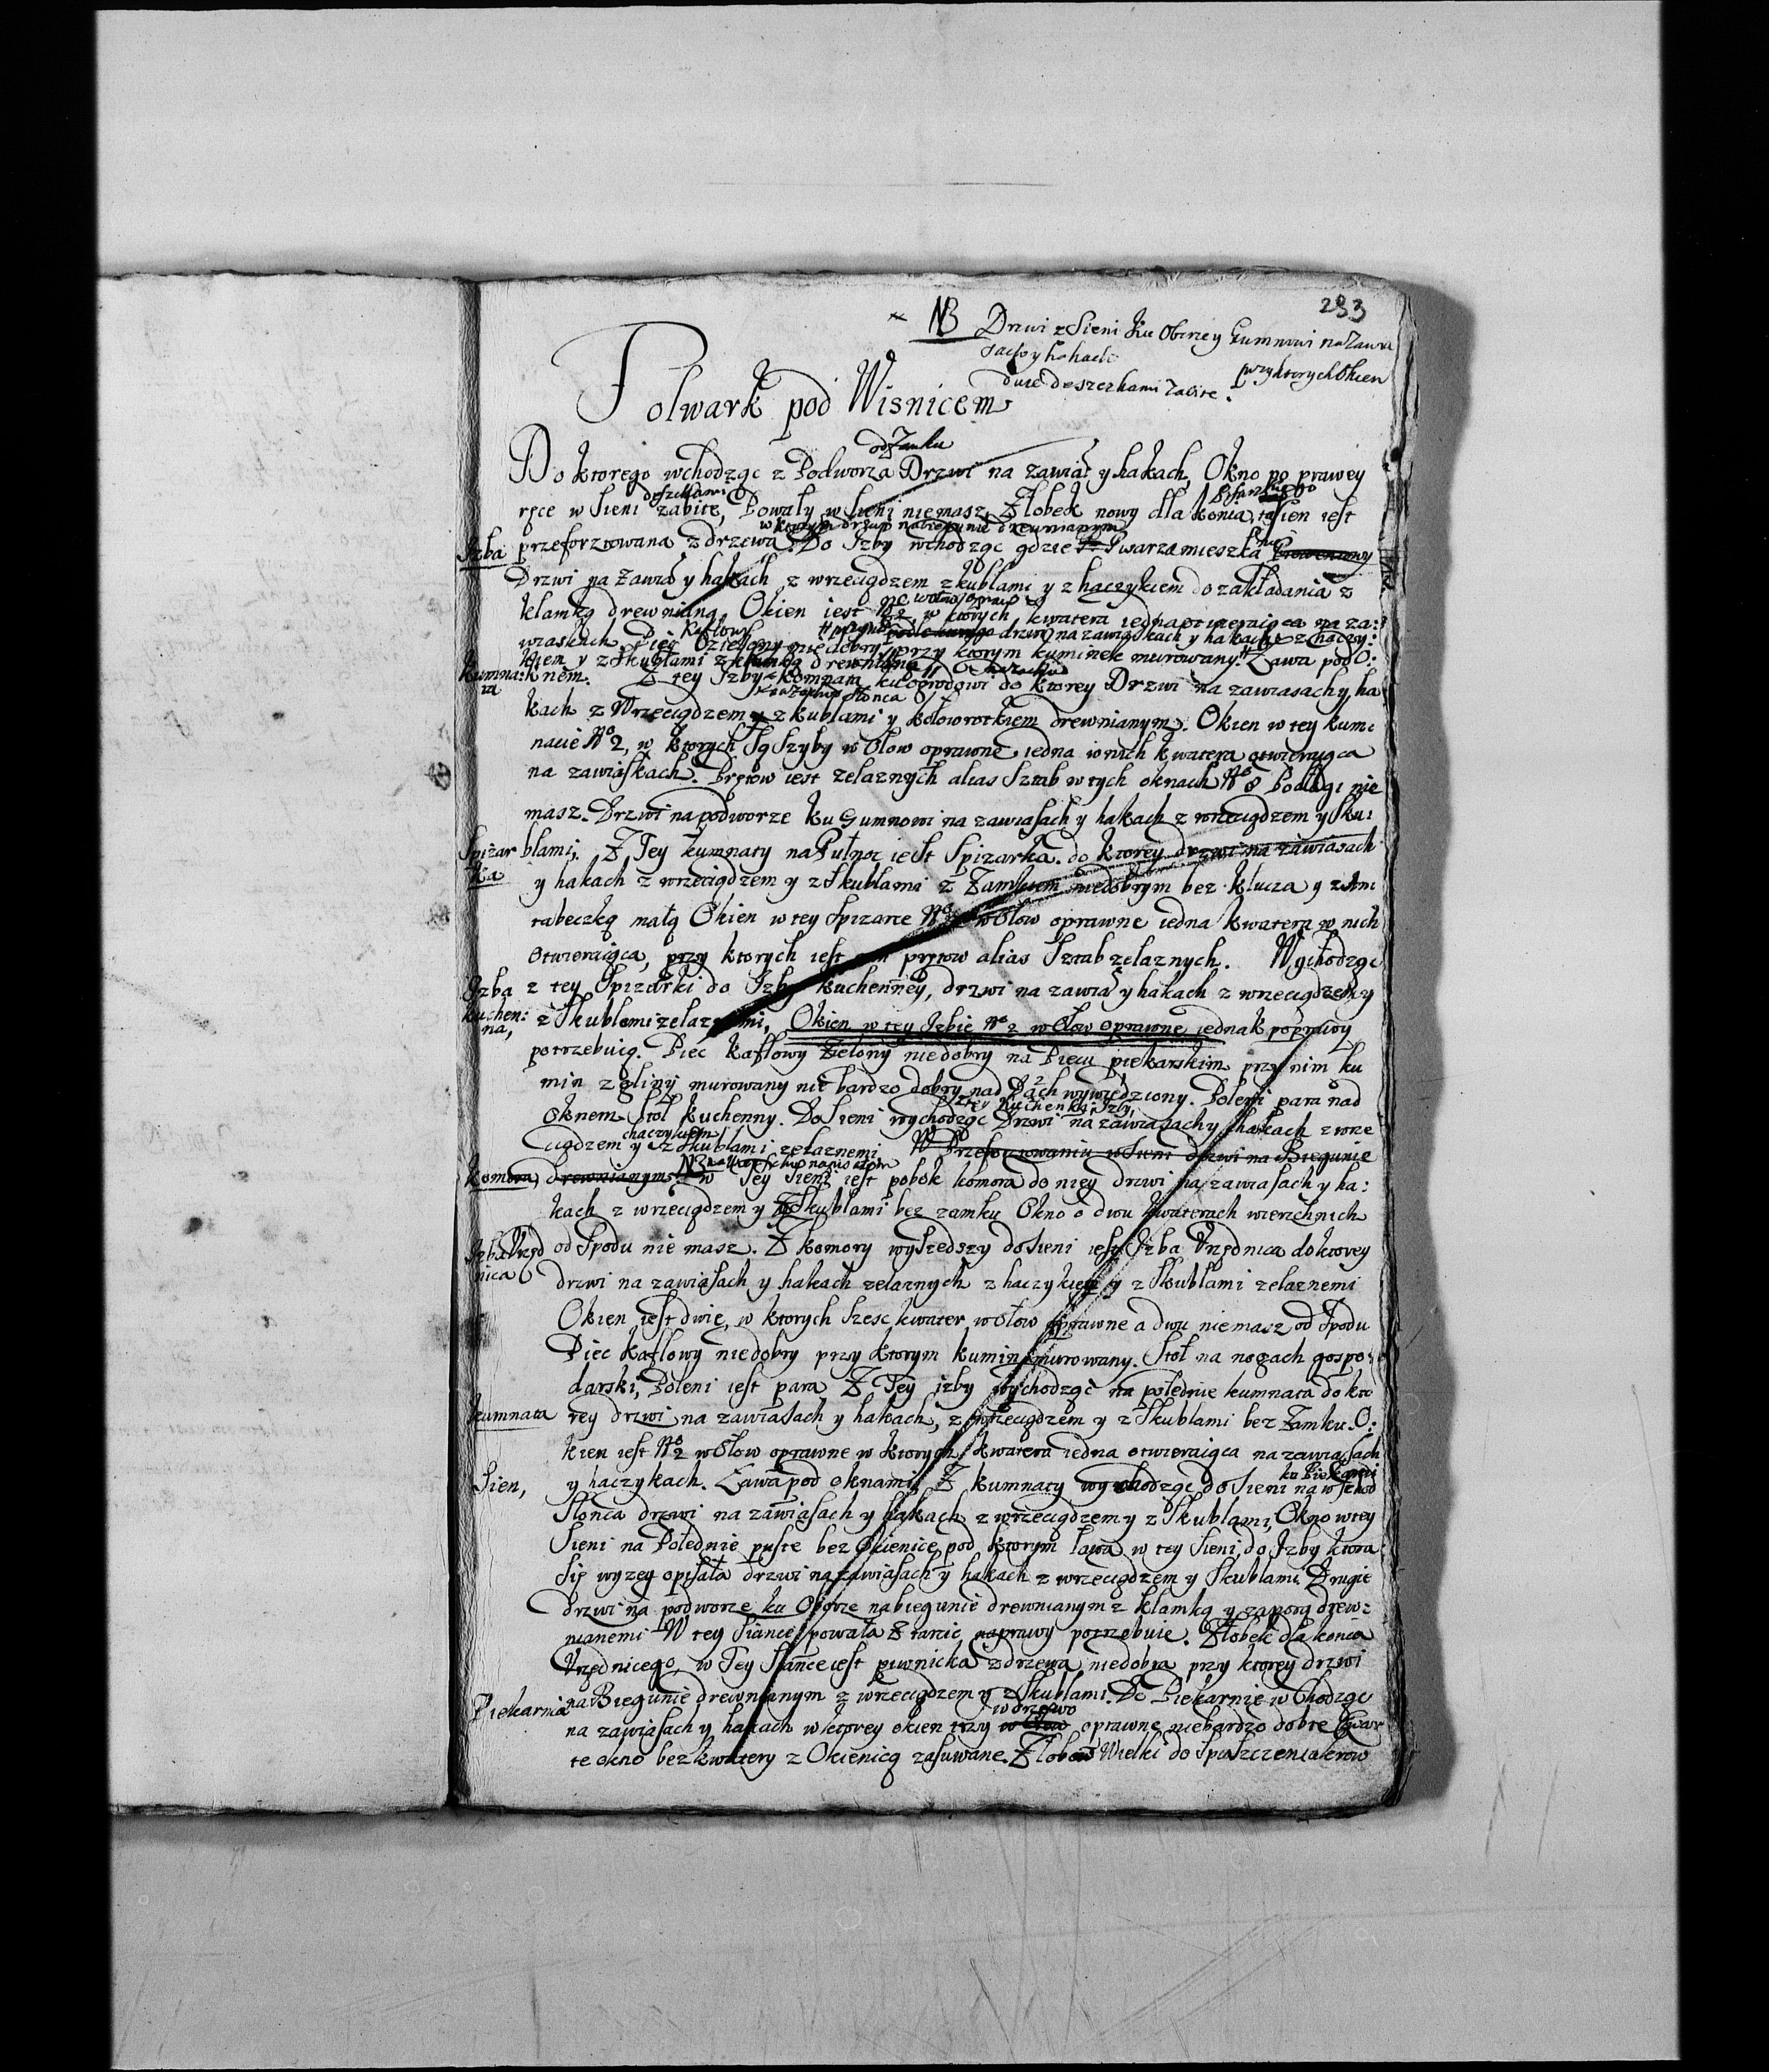 293
NB Drzwi z Sieni Ku Oborzey Gumnowi na zawia
sach y hakach przy ktorych Okien
dwie deszczkami zabite.
Folwark pod Wisnicem
od Zamku
Do ktorego wchodząc z Podworza Drzwi na zawias y hakach, Okno po prawey
deszczkami
ręce w Sieni zabite, Powały w Sieni niemasz, Złobek nowy dla konia, ta Sien iest
w ktorym drzwi na biegunie drewnianym
Izba przeforztowana z drzewa. Do Izby wchodząc gdzie Pisarz mieszka
Drzwi na zawias y hakach z wrzeciądzem zkublami y z haczykiem do zakładania z
w ołow oprawne
klamką drewnianą, Okien iest No 2, w ktorych kwatera iedna otwieraiąca na za:
Kaflowy
wiaskach. Piec Zielony niedobry, przy ktorym kuminek murowany. Ława pod O:
drzwi na zawiaskach y hakach z haczy:
kiem y z Skublami z klamką drewnianą
Kumna:
ta
knem. Z tey Izby Komnata ku Ogrodowi do ktorey Drzwi na zawiasach y ha
na zachod Słonca
kach z Wrzeciądzem y zkublami y kołowrotkiem drewnianym. Okien w tey kum:
nacie No 2, w ktorych Są Szyby w Ołow oprawne, iedna w nich kwatera otwieraiąca
na zawiaskach. Prętow iest zelaznych alias Sztab w tych oknach No 8 Podłogi nie
masz. Drzwi na podworze ku Gumnowi na zawiasach y hakach z wrzeciądzem y Sku:
Spizar
ka
blami. Z Tey kumnaty na Pułnoc iest Spizarka. do ktorey drzwi na zawiasach
y hakach z wrzeciądzem y z Skublami z Zamkiem niedobrym bez klucza y z An:
tabeczką małą Okien w tey Spizarce No w Ołow oprawne iedna kwatera w nich
otwieraiąca, przy ktorych iest prętow alias Sztab zelaznych. Wychodząc
Izba
kuchen:
na,
z tey Spizarki do Izby kuchenney, drzwi na zawias y hakach z wrzeciądzem y
z Skublami zelaznymi, Okien w tey Izbie No 2 w Ołow oprawne iednak poprawy
potrzebuią. Piec kaflowy zielony niedobry na Piecu piekarskim przy nim ku
min z gliny murowany nie bardzo dobry nad Dach wywiedziony. Poleni para nad
z tey kuchenki Izby,
oknem Stoł kuchenny. Do Sieni wychodząc Drzwi na zawiasach y hakach z wrze
chaczykiem
ciądzem y z Skublami zelaznemi W Przeforztowaniu w Sieni drzwi na Biegunie
Komora drewnianym. NB w Tey Sieni iest pobok komora do niey drzwi na zawiasach y ha:
kach z wrzeciądzem y z Skublami bez zamku Okno o dwu kwaterach wierzchnich
Izba Urzęd
nica
od Spodu nie masz. Z komory wyszedszy do Sieni iest Izba Urzędnica do ktorey
drzwi na zawiasach y hakach zelaznych z haczykiem y z Skublami zelaznemi
Okien iest dwie, w ktorych Szesc kwater w Ołow oprawne a dwu nie masz od Spodu
Piec kaflowy niedobry przy ktorym kumin murowany. Stoł na nogach gospo:
darski, Poleni iest para Z Tey izby wychodząc na połednie kumnata do kto
kumnata rey drzwi na zawiasach y hakach, z wrzeciądzem y z Skublami bez Zamku. O:
kien iest No 2 w Ołow oprawne w ktorych kwatera iedna otwieraiąca na zawiasach
Sien, y haczykach. Ława pod oknami, Z kumnaty wychodząc do Sieni na wschod
ku Piekarni
Słonca drzwi na zawiasach y hakach z wrzeciądzem y z Skublami, Okno w tey
Sieni na Połednie puste bez Okienice, pod ktorym ława w tey Sieni, do Izby ktora
Się wyzey opisała drzwi na zawiasach y hakach z wrzeciądzem y Skublami. Drugie
drzwi na podworze ku Oborze na biegunie drewnianym z klamką y zaporą drew:
nianemi W tey Siance powała z tarcic naprawy potrzebuie. Złobek dla konia
Urzędnicego, w Tey Siance iest piwnicka z drzewa niedobra przy ktorey drzwi
Piekarnia na Biegunie drewnianym z wrzeciądzem y z Skublami. Do Piekarnie wchodząc
w drzewo
na zawiasach y hakach w ktorey okien trzy w Ołow oprawne niebardzo dobre Czwar
te okno bez kwatery z Okienicą zasuwane. Złobow Wielki do Spuszczenia krow